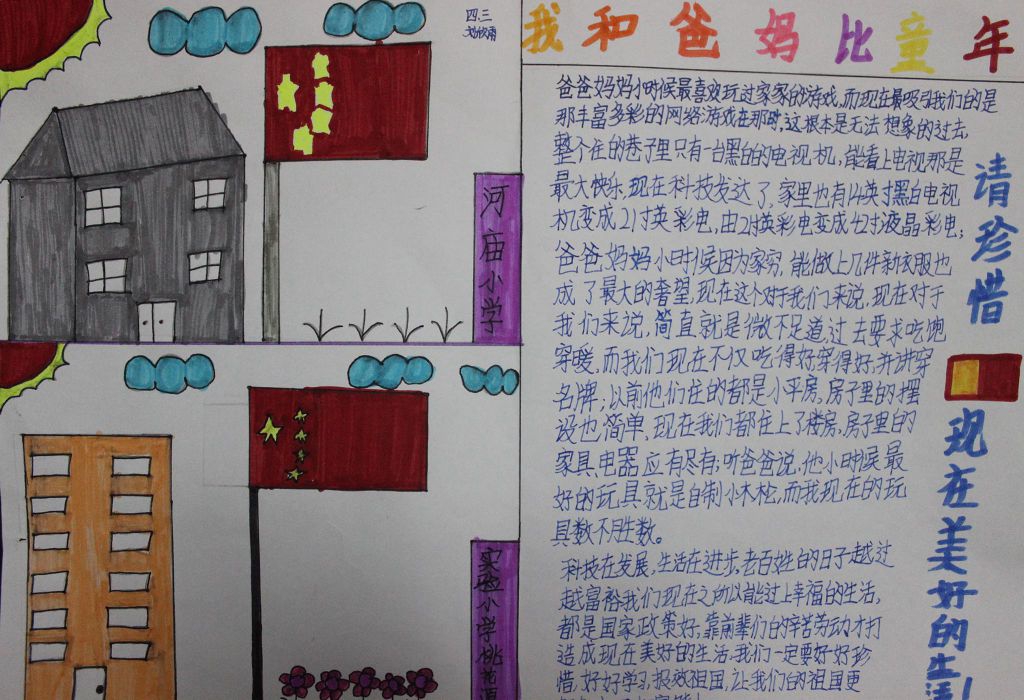 四.三
刘欣雨
河庙小学
实验小学桃花源
我和爸妈比童年
爸爸妈妈小时候最喜欢玩过家家的游戏,而现在最吸引我们的是
那丰富多彩的网络游戏在那时,这根本是无法想象的过去,
整个住的巷子里只有一台黑白的电视机,能看上电视那是
最大快乐,现在科技发达了,家里也有14英寸黑白电视
机变成21寸英彩电,由21寸英彩电变成42寸液晶彩电;
爸爸妈妈小时候因为家穷,能做上几件新衣服也
成了最大的奢望,现在这个对于我们来说,现在对于
我们来说,简直就是微不足道,过去要求吃饱
穿暖,而我们现在不仅吃得好穿得好,并讲穿
名牌;以前他们住的都是小平房,房子里的摆
设也简单,现在我们都住上了楼房,房子里的
家具、电器应有尽有;听爸爸说,他小时候最
好的玩具就是自制小木枪,而我现在的玩
具数不胜数。
科技在发展,生活在进步,老百姓的日子越过
越富裕我们现在之所以能过上幸福的生活,
都是国家政策好,靠前辈们的辛苦劳动才打
造成现在美好的生活,我们一定要好好珍
惜,好好学习,报效祖国,让我们的祖国更
请珍惜
现在美好的生